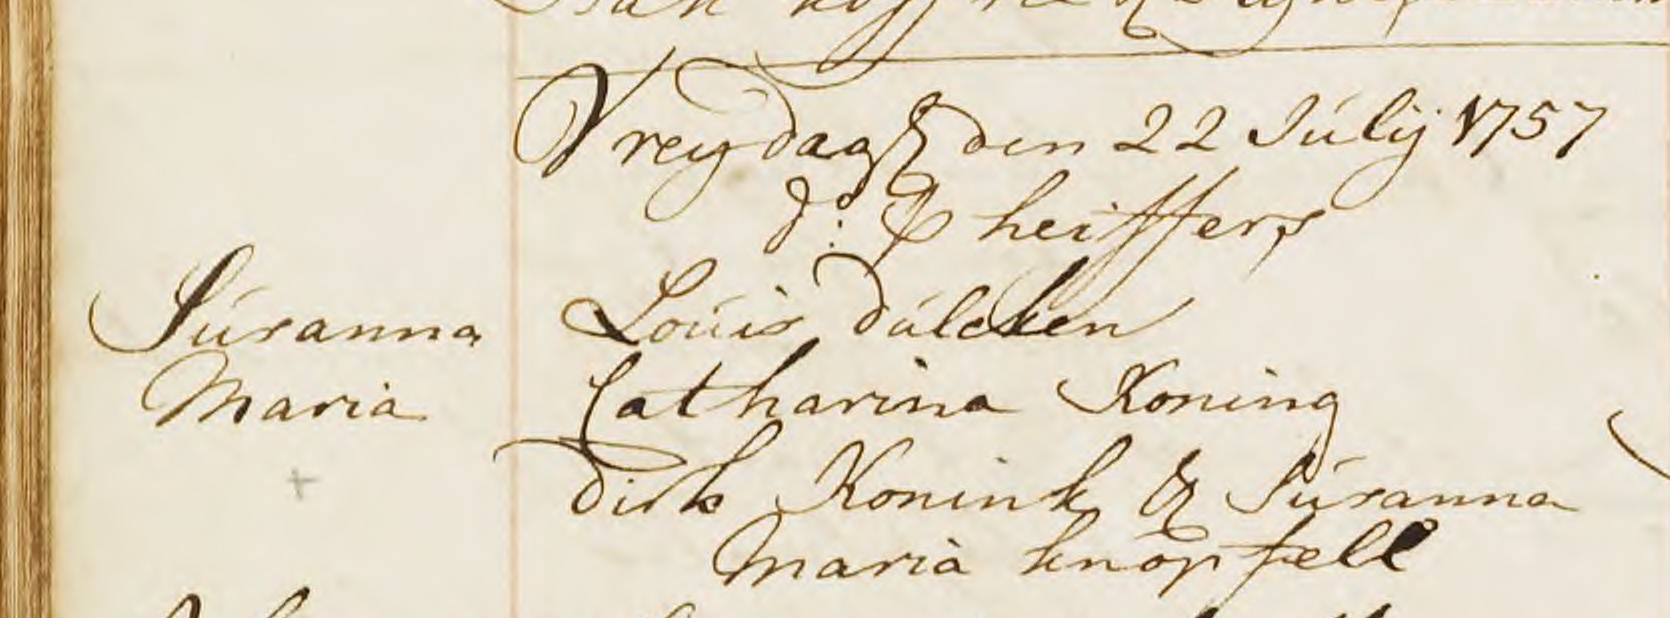 Vreydags den 22 Júlij 1757
do: Pheiffers
Súsanna
Maria
Loúis dúlcken
Catharina Koning
dirk Konink & Súsanna
Maria knöpfell